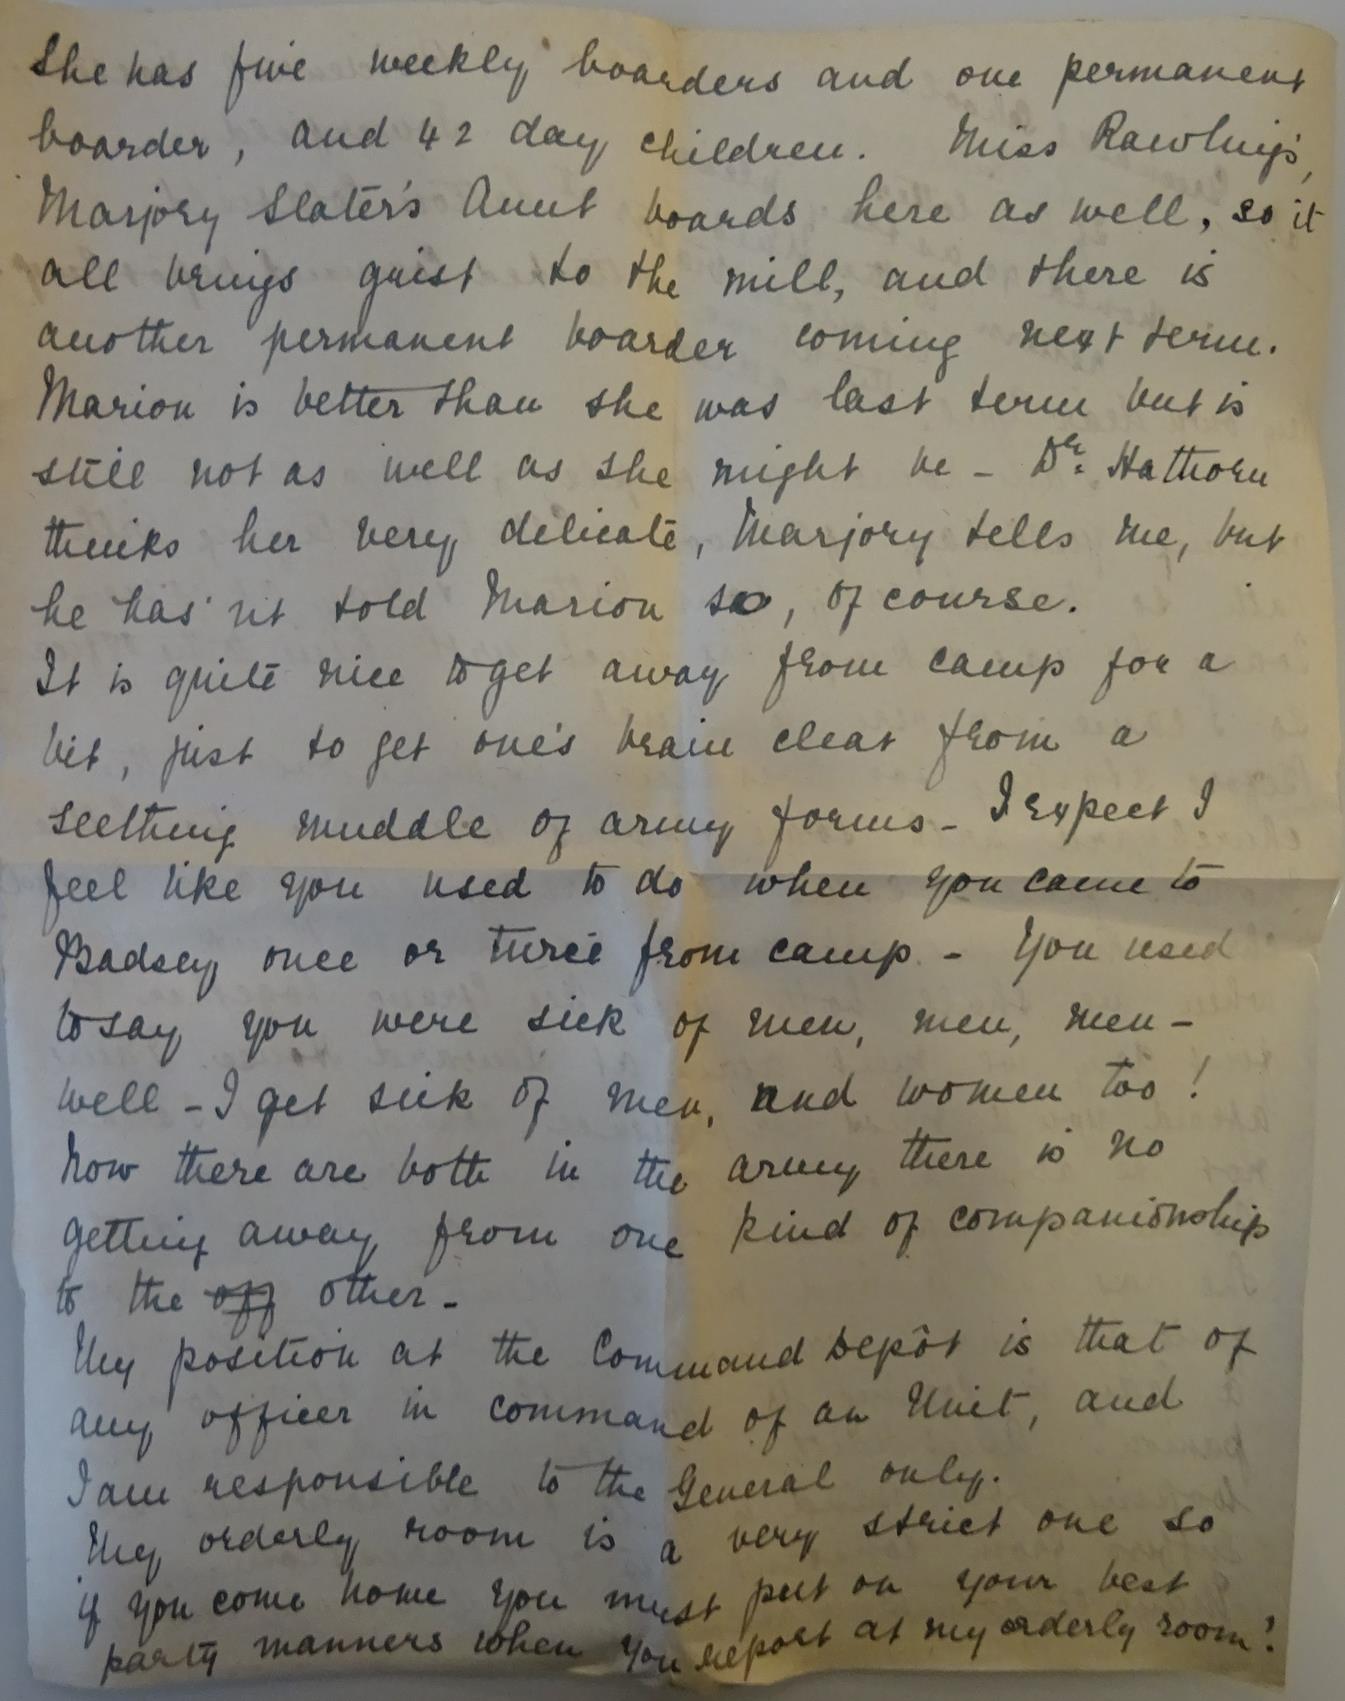 She has five weekly boarders and one permanent
boarder, and 42 day children. Miss Rawlings,
Marjory Slater's Aunt boards here as well, so it
all brings grist to the mill, and there is
another permanent boarder coming next term.
Marion is better than she was last term but is
still not as well as she might be - Dr. Hathorn
thinks her very delicate, Marjory tells me, but
he has'nt told Marion so, of course.
It is quite nice to get away from camp for a
bit, just to get one's brain clear from a
seething muddle of army forms - I expect I
feel like you used to do when you came to
Badsey once or twice from camp - You used
to say you were sick of men, men, men -
well - I get sick of men, and women too!
Now there are both in the army there is no
getting away from one kind of companionship
to the off other -
My position at the Command Depôt is that of
any officer in command of an Unit, and
I am responsible to the General only.
My orderly room is a very strict one so
if you come home you must put on your best
party manners when you report at my orderly room!